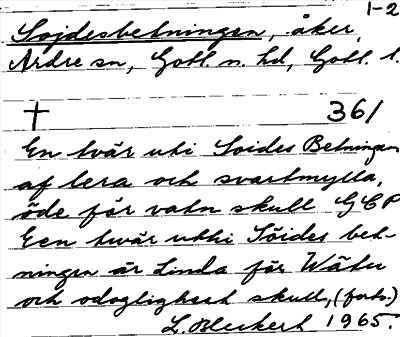 1-2
Sojdesbetningen, åker,
Ardre sn, Gotl. n. hd, Gotl. l.
† 361
En tvär uti Soides Betningen
af lera och svartmylla,
öde för vatn skull GCP
Een twär uthi Söides bet-
ningen är Linda för Wätu
och odogligheet skull, (forts.)
L. Bleckert 1965.